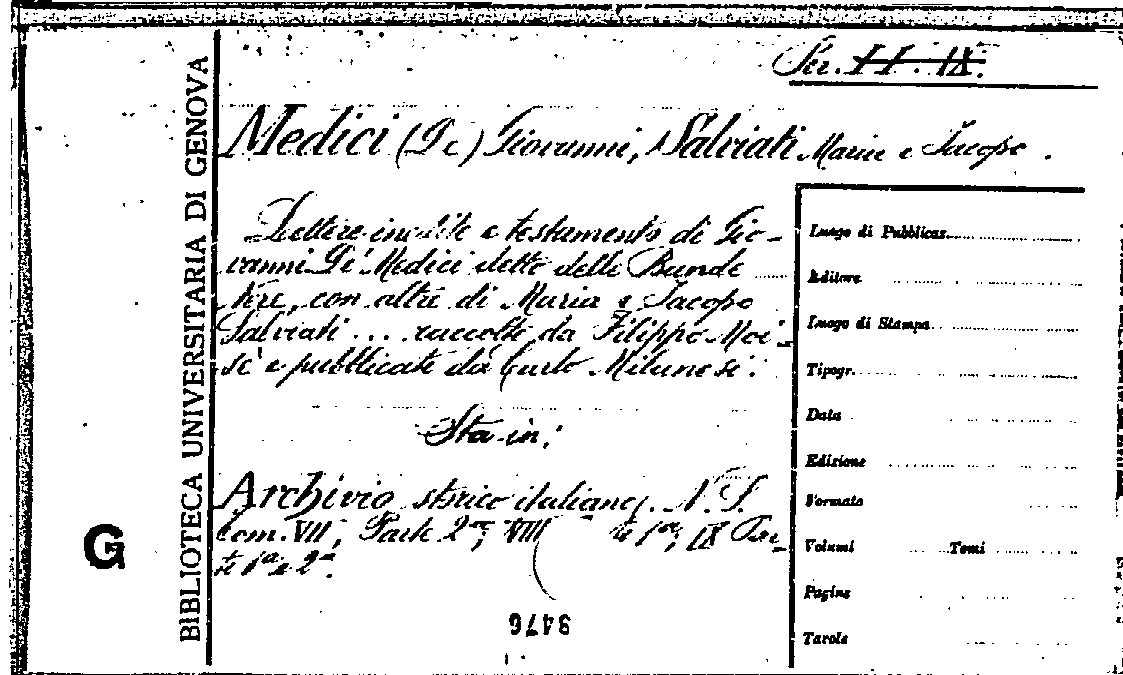 Ser. II. IX.
Medici (De) Giovanni, Salviati Maria e Jacopo.
Lettere inedite e testamento di Gio-
vanni De' Medici detto delle Bande
Nere, con altre di Maria e Jacopo
Salviati ... raccolte da Filippo Moi-
sè e pubblicate da Carlo Milanesi.
Sta in:
Archivio storico italiano, N. S.
tom. VII, Parte 2ª, VIII te 1ª, IX Par-
te 1ª e 2ª.
9476
BIBLIOTECA UNIVERSITARIA DI GENOVA
G
Luogo di Pubblicaz.
Editore
Luogo di Stampa
Tipogr.
Data
Edizione
Formato
Volumi Tomi
Pagine
Tavole